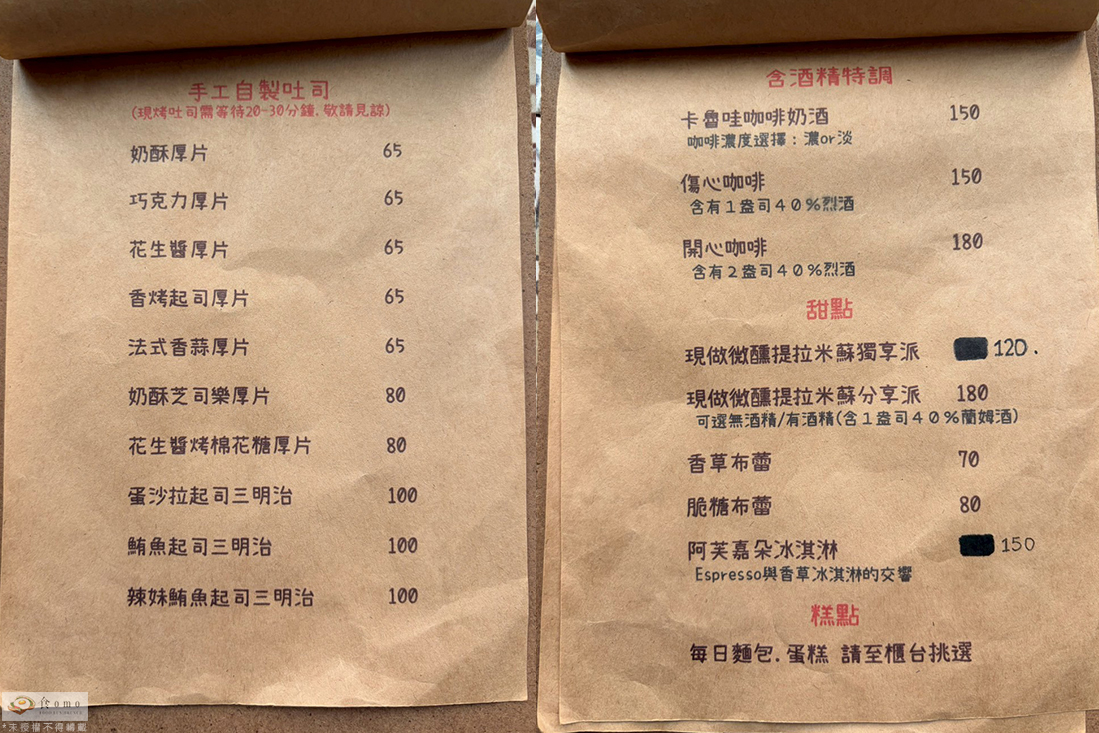 手工自製吐司
(現烤吐司需等待20-30分鐘,敬請見諒)
奶酥厚片 65
巧克力厚片 65
花生醬厚片 65
香烤起司厚片 65
法式香蒜厚片 65
奶酥芝司樂厚片 80
花生醬烤棉花糖厚片 80
蛋沙拉起司三明治 100
鮪魚起司三明治 100
辣妹鮪魚起司三明治 100
含酒精特調
卡魯哇咖啡奶酒 150
咖啡濃度選擇：濃or淡
傷心咖啡 150
含有1盎司40%烈酒
開心咖啡 180
含有2盎司40%烈酒
甜點
現做微醺提拉米蘇獨享派 120.
現做微醺提拉米蘇分享派 180
可選無酒精/有酒精(含1盎司40%蘭姆酒)
香草布蕾 70
脆糖布蕾 80
阿芙嘉朵冰淇淋 150
Espresso與香草冰淇淋的交響
糕點
每日麵包.蛋糕 請至櫃台挑選
食omo
*未授權不得轉載